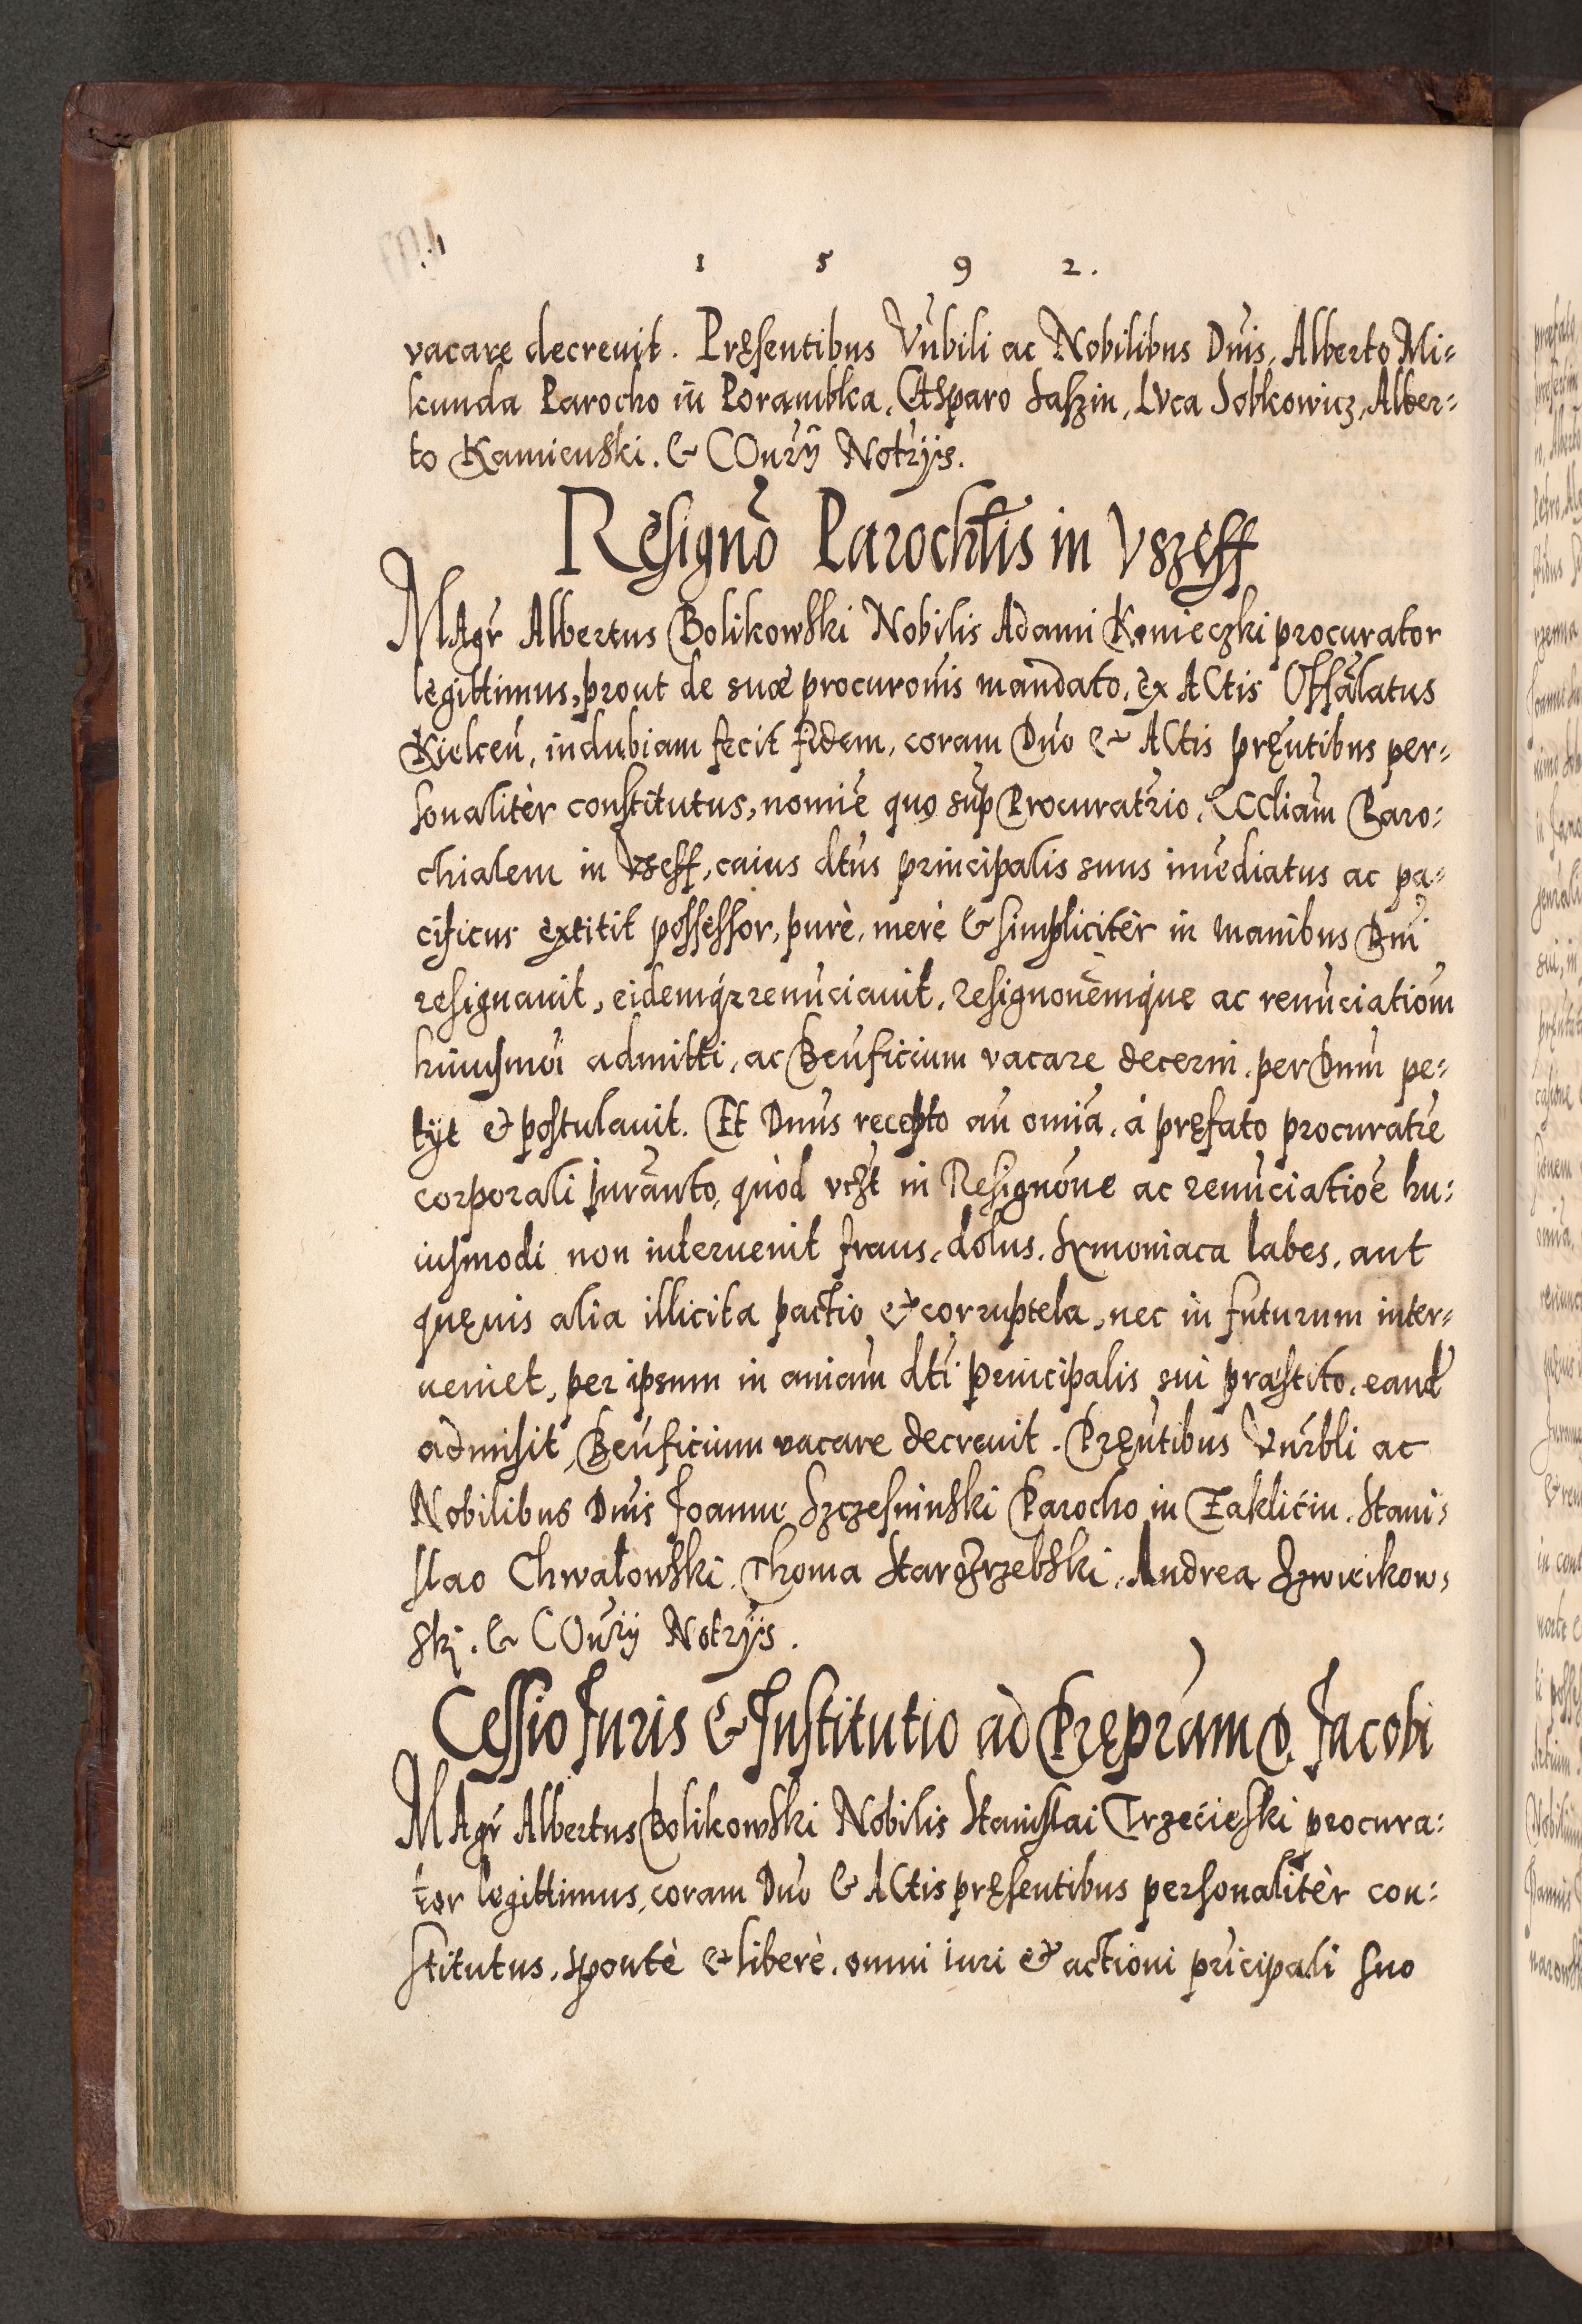 1 5 9 2.
vacare decreuit. Pręsentibus Vnbili ac Nobilibus Dnis, Alberto Mi=
kunda Parocho in Porambka, CAsparo Saszin, LVca Sobkowicz, Alber=
to Kamienski. & COnrÿ Notrÿs.
Resignõ Parochlis in Vszeff
MAgr Albertus Bolikowski Nobilis Adami Konieczki procurator
legittimus, prout de suæ procuronis mandato, ex ACtis Offalatus
Kielceñ, indubiam fecit fidem, coram Dno & ACtis pręntibus per=
sonalitèr constitutus, nomie quo sup Procuratrio, ECcliam Paro=
chialem in Vszeff, cuius dtus principalis suus imediatus ac pa=
cificus extitit possessor, purè, merè & simplicitèr in manibus Dni
resignauit, eidemq́z renuciauit. Resignonemq́ue ac renuciationi
huiusmoi admitti, ac Benficium vacare decerni, per Dnum pe=
tÿt & postulauit. Et Dnus recepto an omia, à pręfato procuratre
corporali iuranto, quòd vczt in Resignone ac renuciatioe hu=
iusmodi non interuenit fraus, dolus, Symoniaca labes, aut
quęuis alia illicita pactio & corruptela, nec in futurum inter=
ueniet, per ipsum in aniam dti principalis sui præstito, eand
admisit, Benficium vacare decreuit. Pręntibus Vnrbli ac
Nobilibus Dnis Joanne Szczesninski Parocho in Zakliciñ, Stani=
slao Chwałowski, Thoma Starozrzebski, Andrea Szwicikow=
ski. & COnrÿ Notrÿs.
Cessio Juris & Institutio ad Pręprám S. Jacobi
MAgr Albertus Bolikowski Nobilis Stanislai Trzecieski procura=
tor legittimus, coram Dno & ACtis pręsentibus personalitèr con=
stitutus, spontè & liberè, omni iuri & actioni pricipali suo